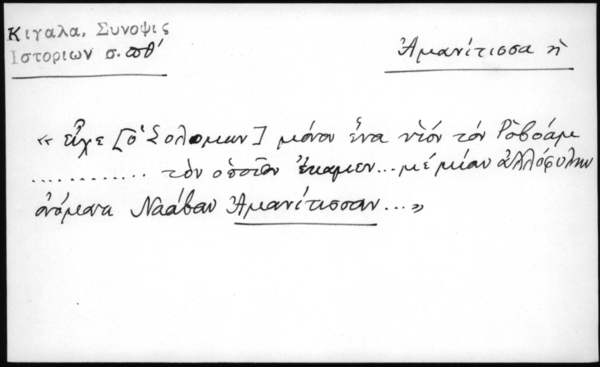 Κιγαλα, Συνοψις
Ιστοριων σ.
Ἀμανίτισσα ἡ
« εἶχε [ὁ Σολομων] μόνον ἕνα υἱόν τόν Ῥοβοάμ
............ τὸν ὁποῖον ἔκαμεν... μέ μίαν ἀλλόφυλην
ὀνόματι Ναάβαν Ἀμανίτισσαν...»